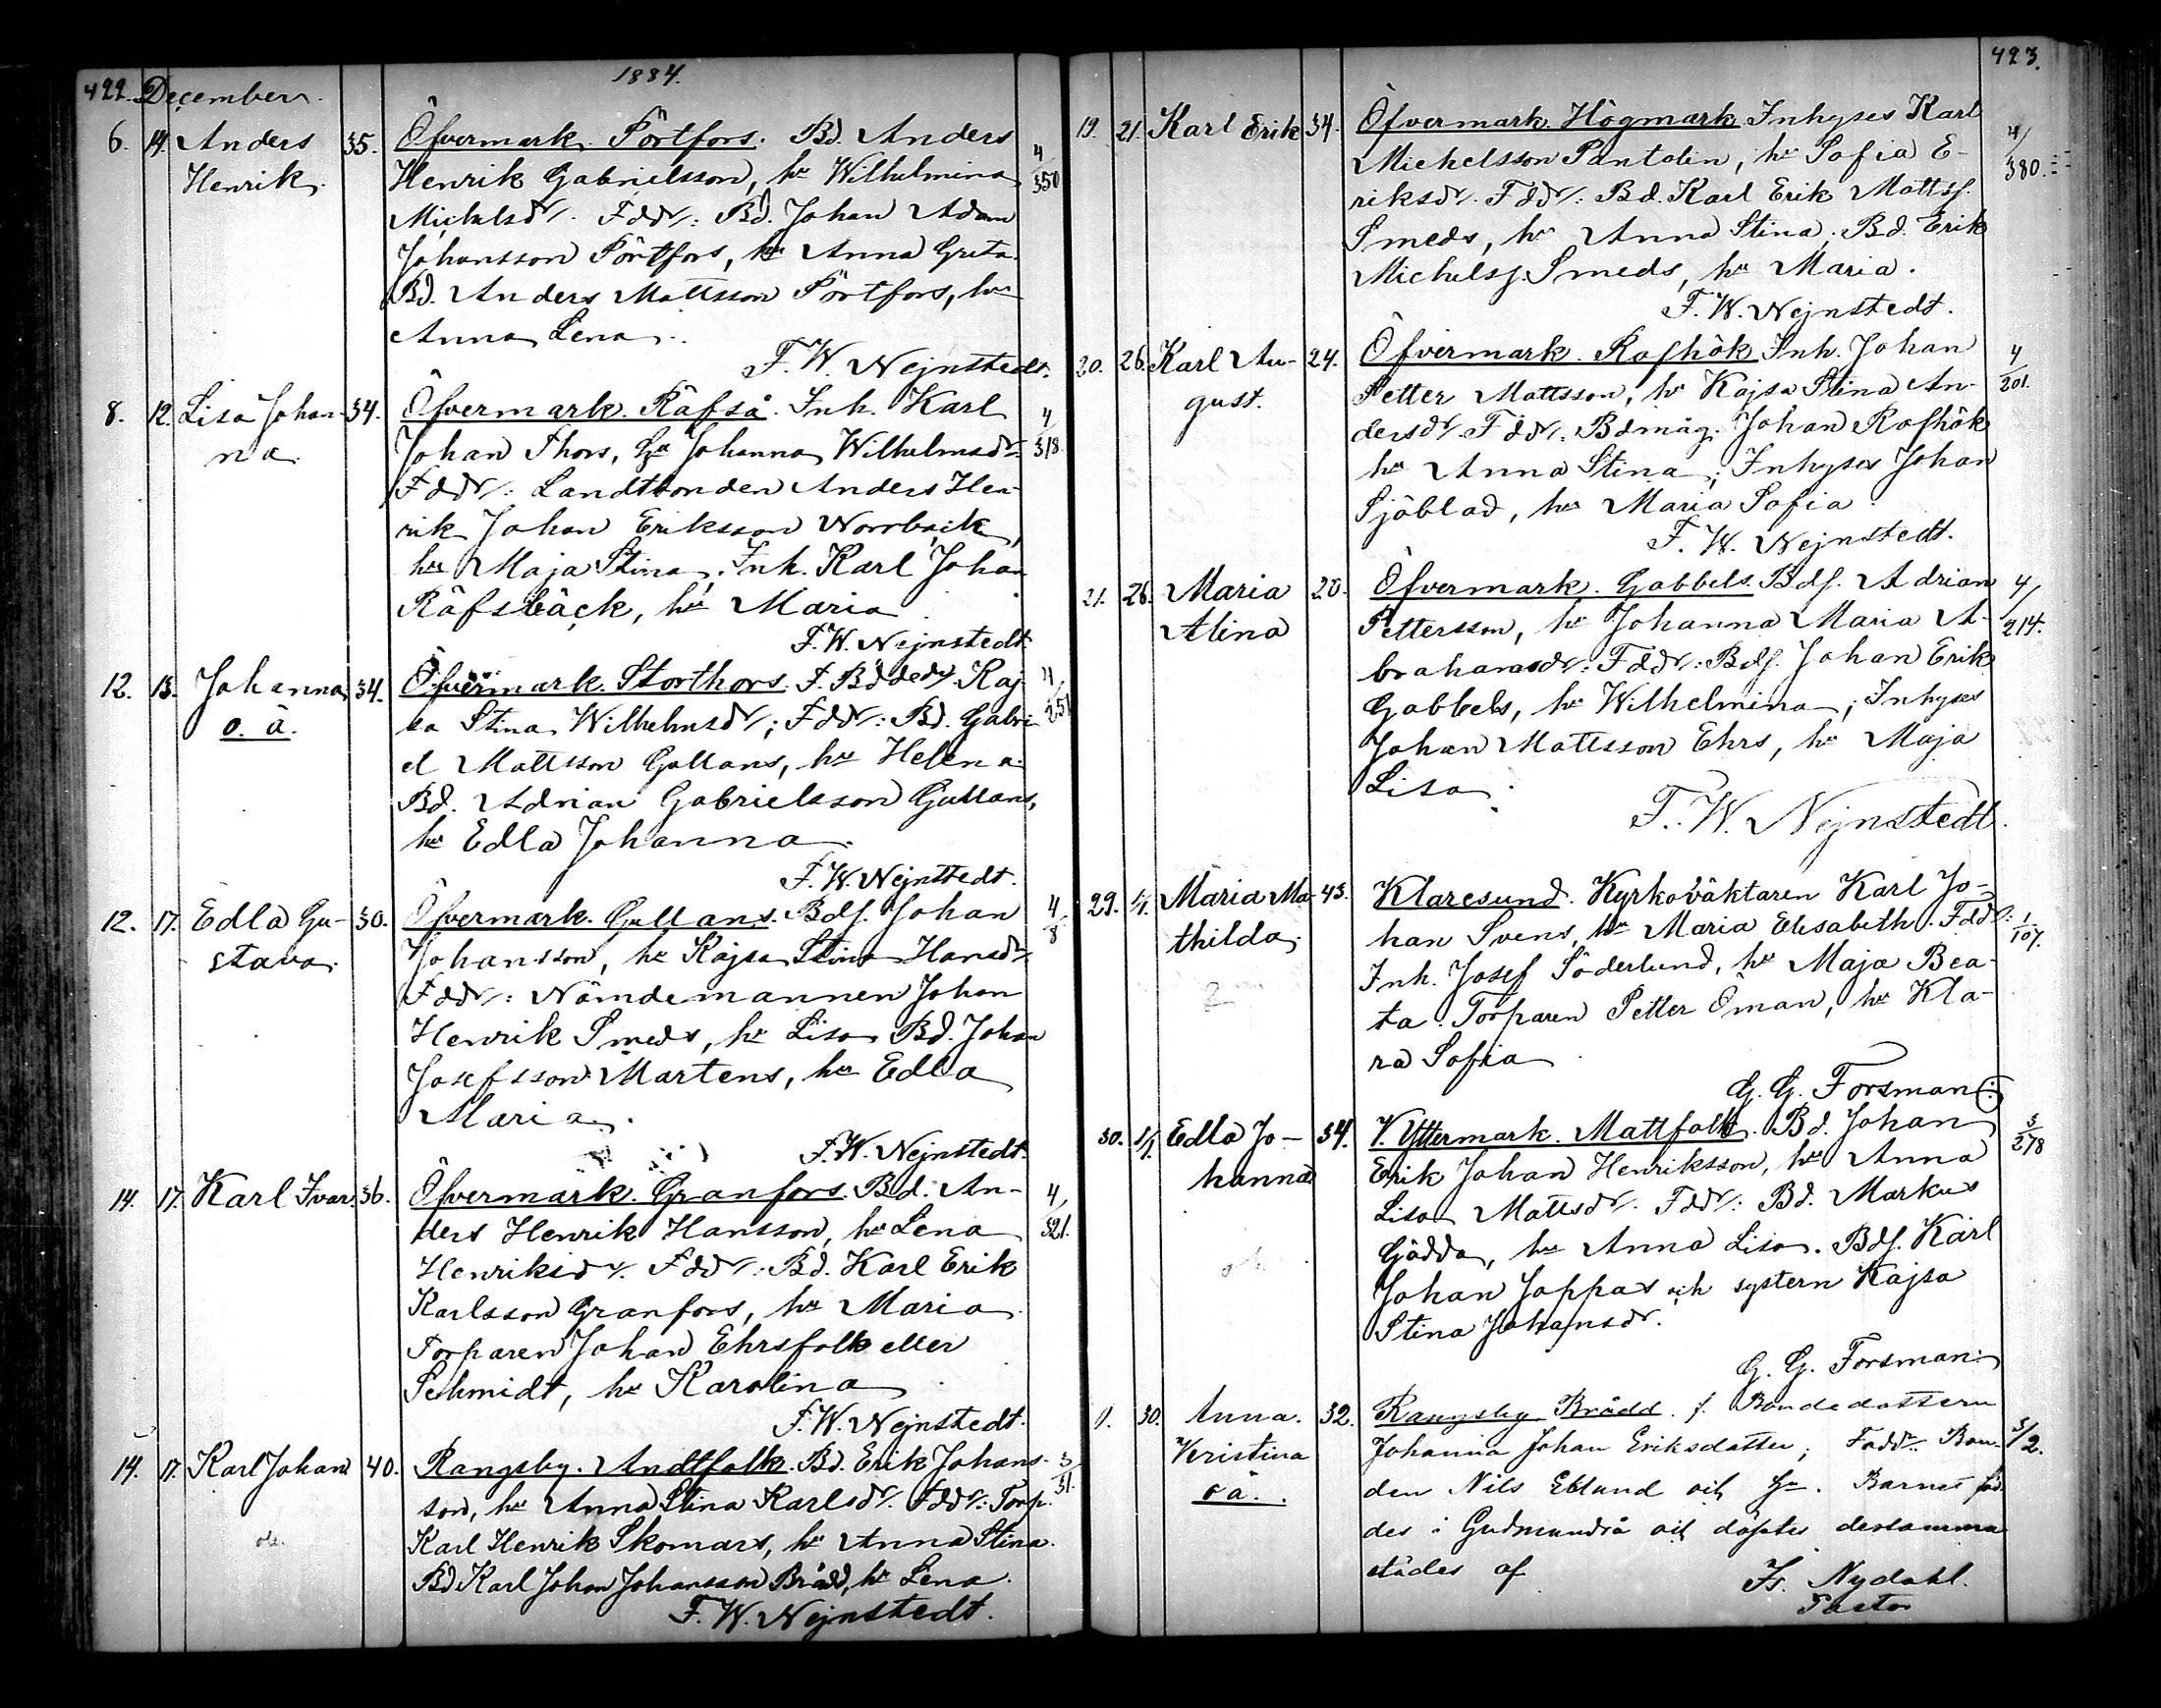 422. December. 1884.
6. 14. Anders 35. Öfvermark. Pörtfors. Bd. Anders 4/350
Henrik. Henrik Gabrielsson, hu Wilhelmina
Michelsdr. Fddr: Bd. Johan Adam
Johansson Pörtfors, hu Anna Greta.
Bd. Anders Mattsson Pörtfors, hu
Anna Lena.
F. W. Nejnstedt.
8. 12. Lisa Johan- 34. Öfvermark. Räfså. Inh. Karl 4/318
na. Johan Thors, hu Johanna Wilhelmsdr
Fddr: Landtbonden Anders Hen-
rik Johan Eriksson Norrbäck,
hu Maja Stina. Inh. Karl Johan
Räfsbäck, hu Maria
F. W. Nejnstedt.
12. 13. Johanna 34. Öfvermark. Storthors. f. Bddedr. Kaj- 4/251
o. ä. sa Stina Wilhelmsdr; Fddr: Bd. Gabri-
el Mattsson Gullans, hu Helena.
Bd. Adrian Gabrielsson Gullans,
hu Edla Johanna.
F. W. Nejnstedt.
12. 17. Edla Gu- 30. Öfvermark. Gullans. Bds. Johan 4/8
stava. Johansson, hu Kajsa Stina Hansdr
Fddr: Nämdemannen Johan
Henrik Smeds, hu Lisa. Bd. Johan
Josefsson Martens, hu Edla
Maria.
F. W. Nejnstedt.
14. 17. Karl Ivar. 36. Öfvermark. Granfors. Bd. An- 4/321.
ders Henrik Hansson, hu Lena
Henriksdr. Fddr: Bd. Karl Erik
Karlsson Granfors, hu Maria.
Torparen Johan Ehrsfolk eller
Schmidt, hu Karolina.
F. W. Nejnstedt.
14. 17. Karl Johan 40. Rangsby. Andtfolk. Bd. Erik Johans- 3/31.
son, hu Anna Stina Karlsdr. Fddr: Torp.
Karl Henrik Skomars, hu Anna Stina.
Bd Karl Johan Johansson Brådd, hu Lena.
F. W. Nejnstedt.
423.
19. 21. Karl Erik 34. Öfvermark. Högmark. Inhyses Karl 4/380.
Michelsson Pantolin, hu Sofia E-
riksdr. Fddr: Bd. Karl Erik Mattss.
Smeds, hu Anna Stina. Bd. Erik
Michelss. Smeds, hu Maria.
F. W. Nejnstedt.
20. 26. Karl Au- 24. Öfvermark. Rofhök. Inh. Johan 4/201.
gust. Petter Mattsson, hu Kajsa Stina An-
dersdr. Fddr: Bdmåg. Johan Rofhök
hu Anna Stina; Inhyses Johan
Sjöblad, hu Maria Sofia
F. W. Nejnstedt.
21. 26. Maria 20. Öfvermark. Gabbels. Bds. Adrian 4/214.
Alina Pettersson, hu Johanna Maria A-
brahamsdr: Fddr: Bds. Johan Erik
Gabbels, hu Wilhelmina; Inhyses
Johan Mattsson Ehrs, hu Maja
Lisa.
F. W. Nejnstedt.
29. 1/1. Maria Ma- 43. Klaresund. Kyrkoväktaren Karl Jo- 1/107.
thilda. han Svens, hu Maria Elisabeth. Fddr:
Inh. Josef Söderlund, hu Maja Bea-
ta. Torparen Petter Öman, hu Kla-
ra Sofia
G. G. Forsman
30. 1/1. Edla Jo- 34. Y. Yttermark. Mattfolk. Bd. Johan 3/278
hanna Erik Johan Henriksson, hu Anna
Lisa Mattsdr. Fddr: Bd. Markus
Gädda, hu Anna Lisa. Bds. Karl
Johan Joppas och systern Kajsa
Stina Johansdr.
G. G. Forsman
30. Anna. 32. Rangsby Brådd. f. Bondedottern 3/2.
Kristina Johanna Johan Eriksdotter; Faddr. Bon-
o ä. den Nils Eklund och hu. Barnet föd-
des i Gudmundrå och döptes dersamma-
städes af
Fr. Nydahl.
Pastor